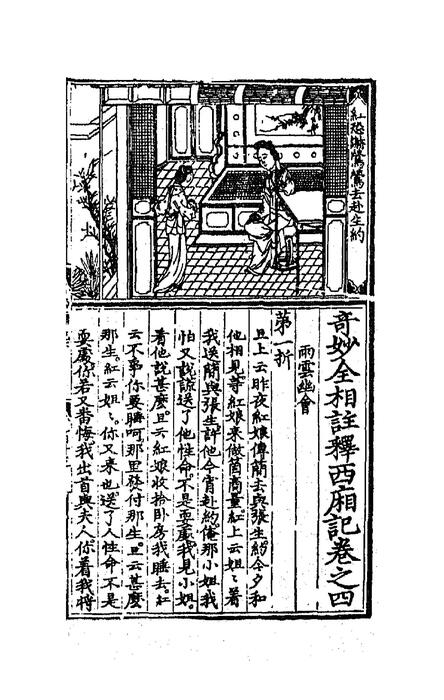 紅恐㵝鶯鶯去赴生約
奇妙全相註釋西廂記卷之四
雨雲幽會
第一折
旦上云昨夜紅娘傳簡去與張生約今夕和
他相見等紅娘来做箇商量紅上云姐〻着
我送簡與張生許他今宵赴約俺那小姐我
怕又說謊送了他性命不是耍處我見小姐
看他說甚麽旦云紅娘收拾卧房我睡去紅
云不争你要睡呵那里發付那生旦云甚麽
那生紅云姐〻你又来也送了人性命不是
耍處你若又番悔我出首與夫人你着我將